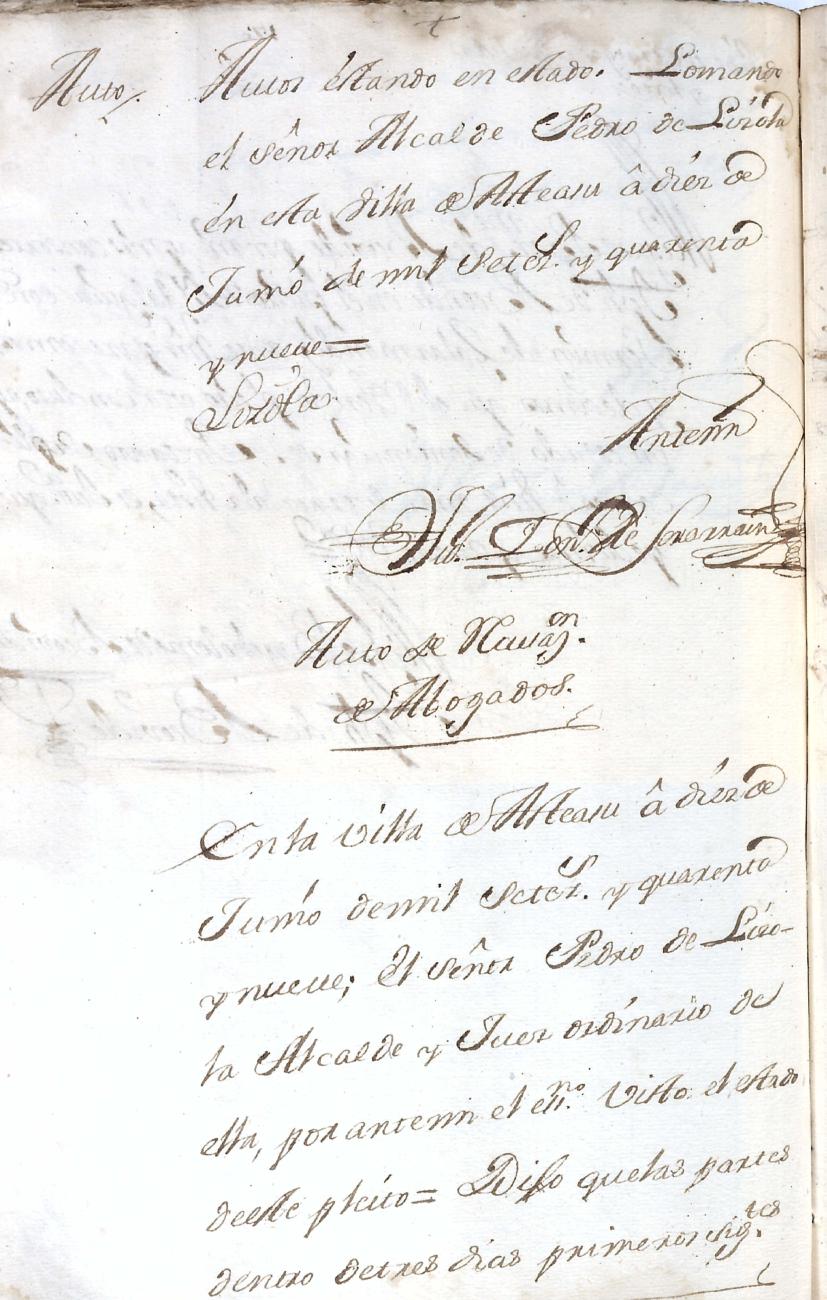 Auto.
Autos estando en estado. Lo mando
el señor Alcalde Pedro de Lizola
en esta Villa de Asteasu â diez de
Junio de mil Setez.s y quarenta
y nueue=
Lizola
Antemi
de Sorarrain
Auto de Nauaz.on
de Abogados.
En la villa de Asteasu â diez de
Junio de mil Setez.s y quarenta
y nueue; El señor Pedro de Lizo-
la Alcalde y Juez ordinario de
ella, por antemi el ess.no Visto el estado
de este pleito= Dijo que las partes
dentro de tres dias primeros sig.tes